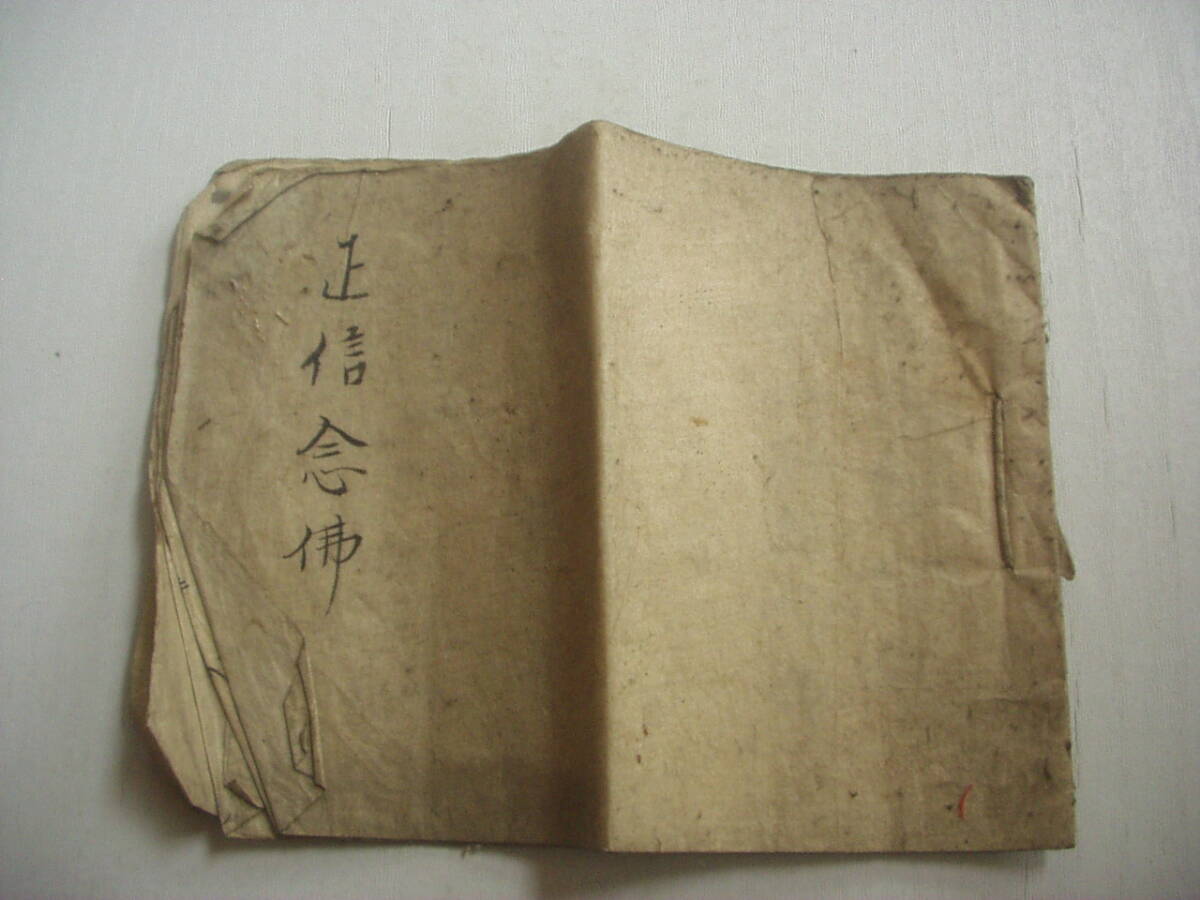 正信念佛